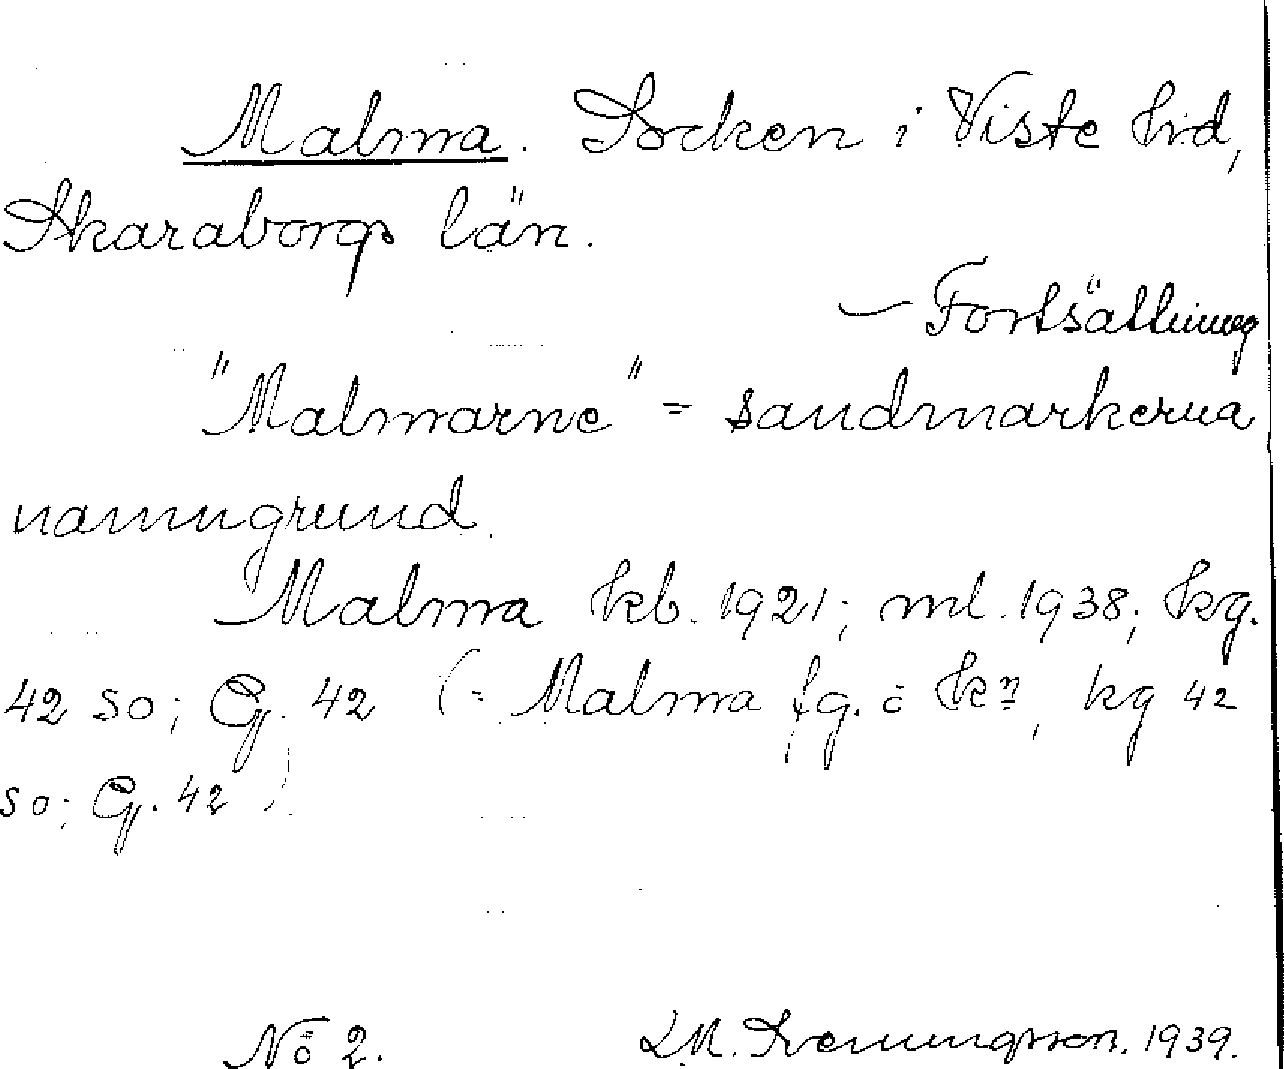 Malma. Socken i Viste hd,
Skaraborgs län.
— Fortsättning
"Malmarne" = sandmarkerna
namngrund.
Malma kb. 1921; ml. 1938; kg.
42 so; G. 42 (= Malma fg. o kn, kg 42
so; G. 42).
No 2. LM. Svenungsson. 1939.